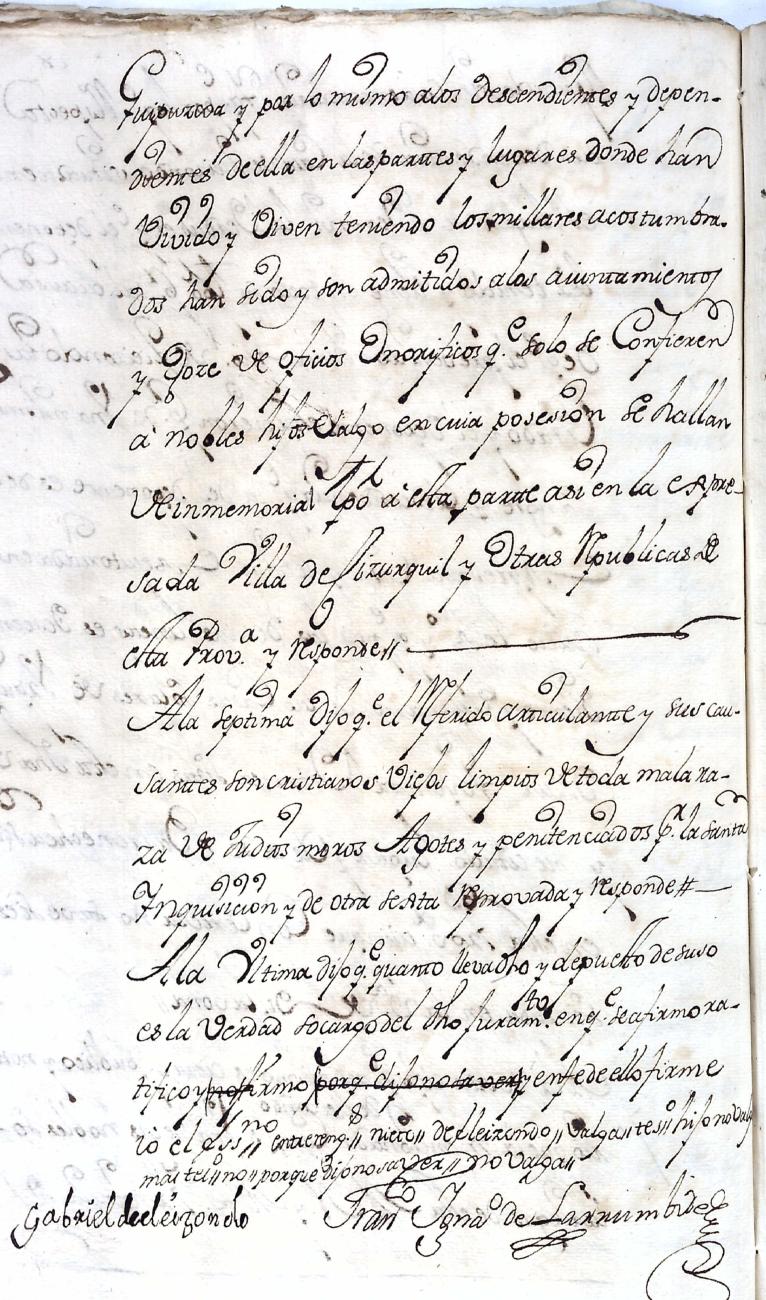 Guipuzcoa y por lo mismo alos descendientes y depen-
dientes de ella en las partes y lugares donde han
Vivido y Viven teniendo los millares acostumbra-
dos han sido y son admitidos alos aiuntamientos
y Goze de oficios Onorificos q.e solo se Confieren
a nobles hijos Dalgo en cuia posesion se hallan
de inmemorial tpō a esta parte asi en la expre-
sada Villa de Cizurquil y Otras Republicas de
esta Prov.a y responde//
Ala septima Dijo q.e el Referido articulante y sus cau-
santes son cristianos Viejos limpios de toda mala ra-
za de Judios moros Agotes y penitenciados p.r la santa
Inquisicion y de otra sexta Reprovada y responde//
Ala Vltima dijo q.e quanto lleva dho y depuesto de suso
es la Verdad so cargo del dho Juram.to en q.e se afirmo ra-
tifico y no firmo porq.e dijo no saver y en fe de ello firme
io el ess.no entrereng.s // nieto // de eleizondo // Valga // tes.o hijo no valg
mas tel.o // no // porque dijo no saver // no valga //
Gabriel de eleizondo Fran.co Igna.o de Larrumbide